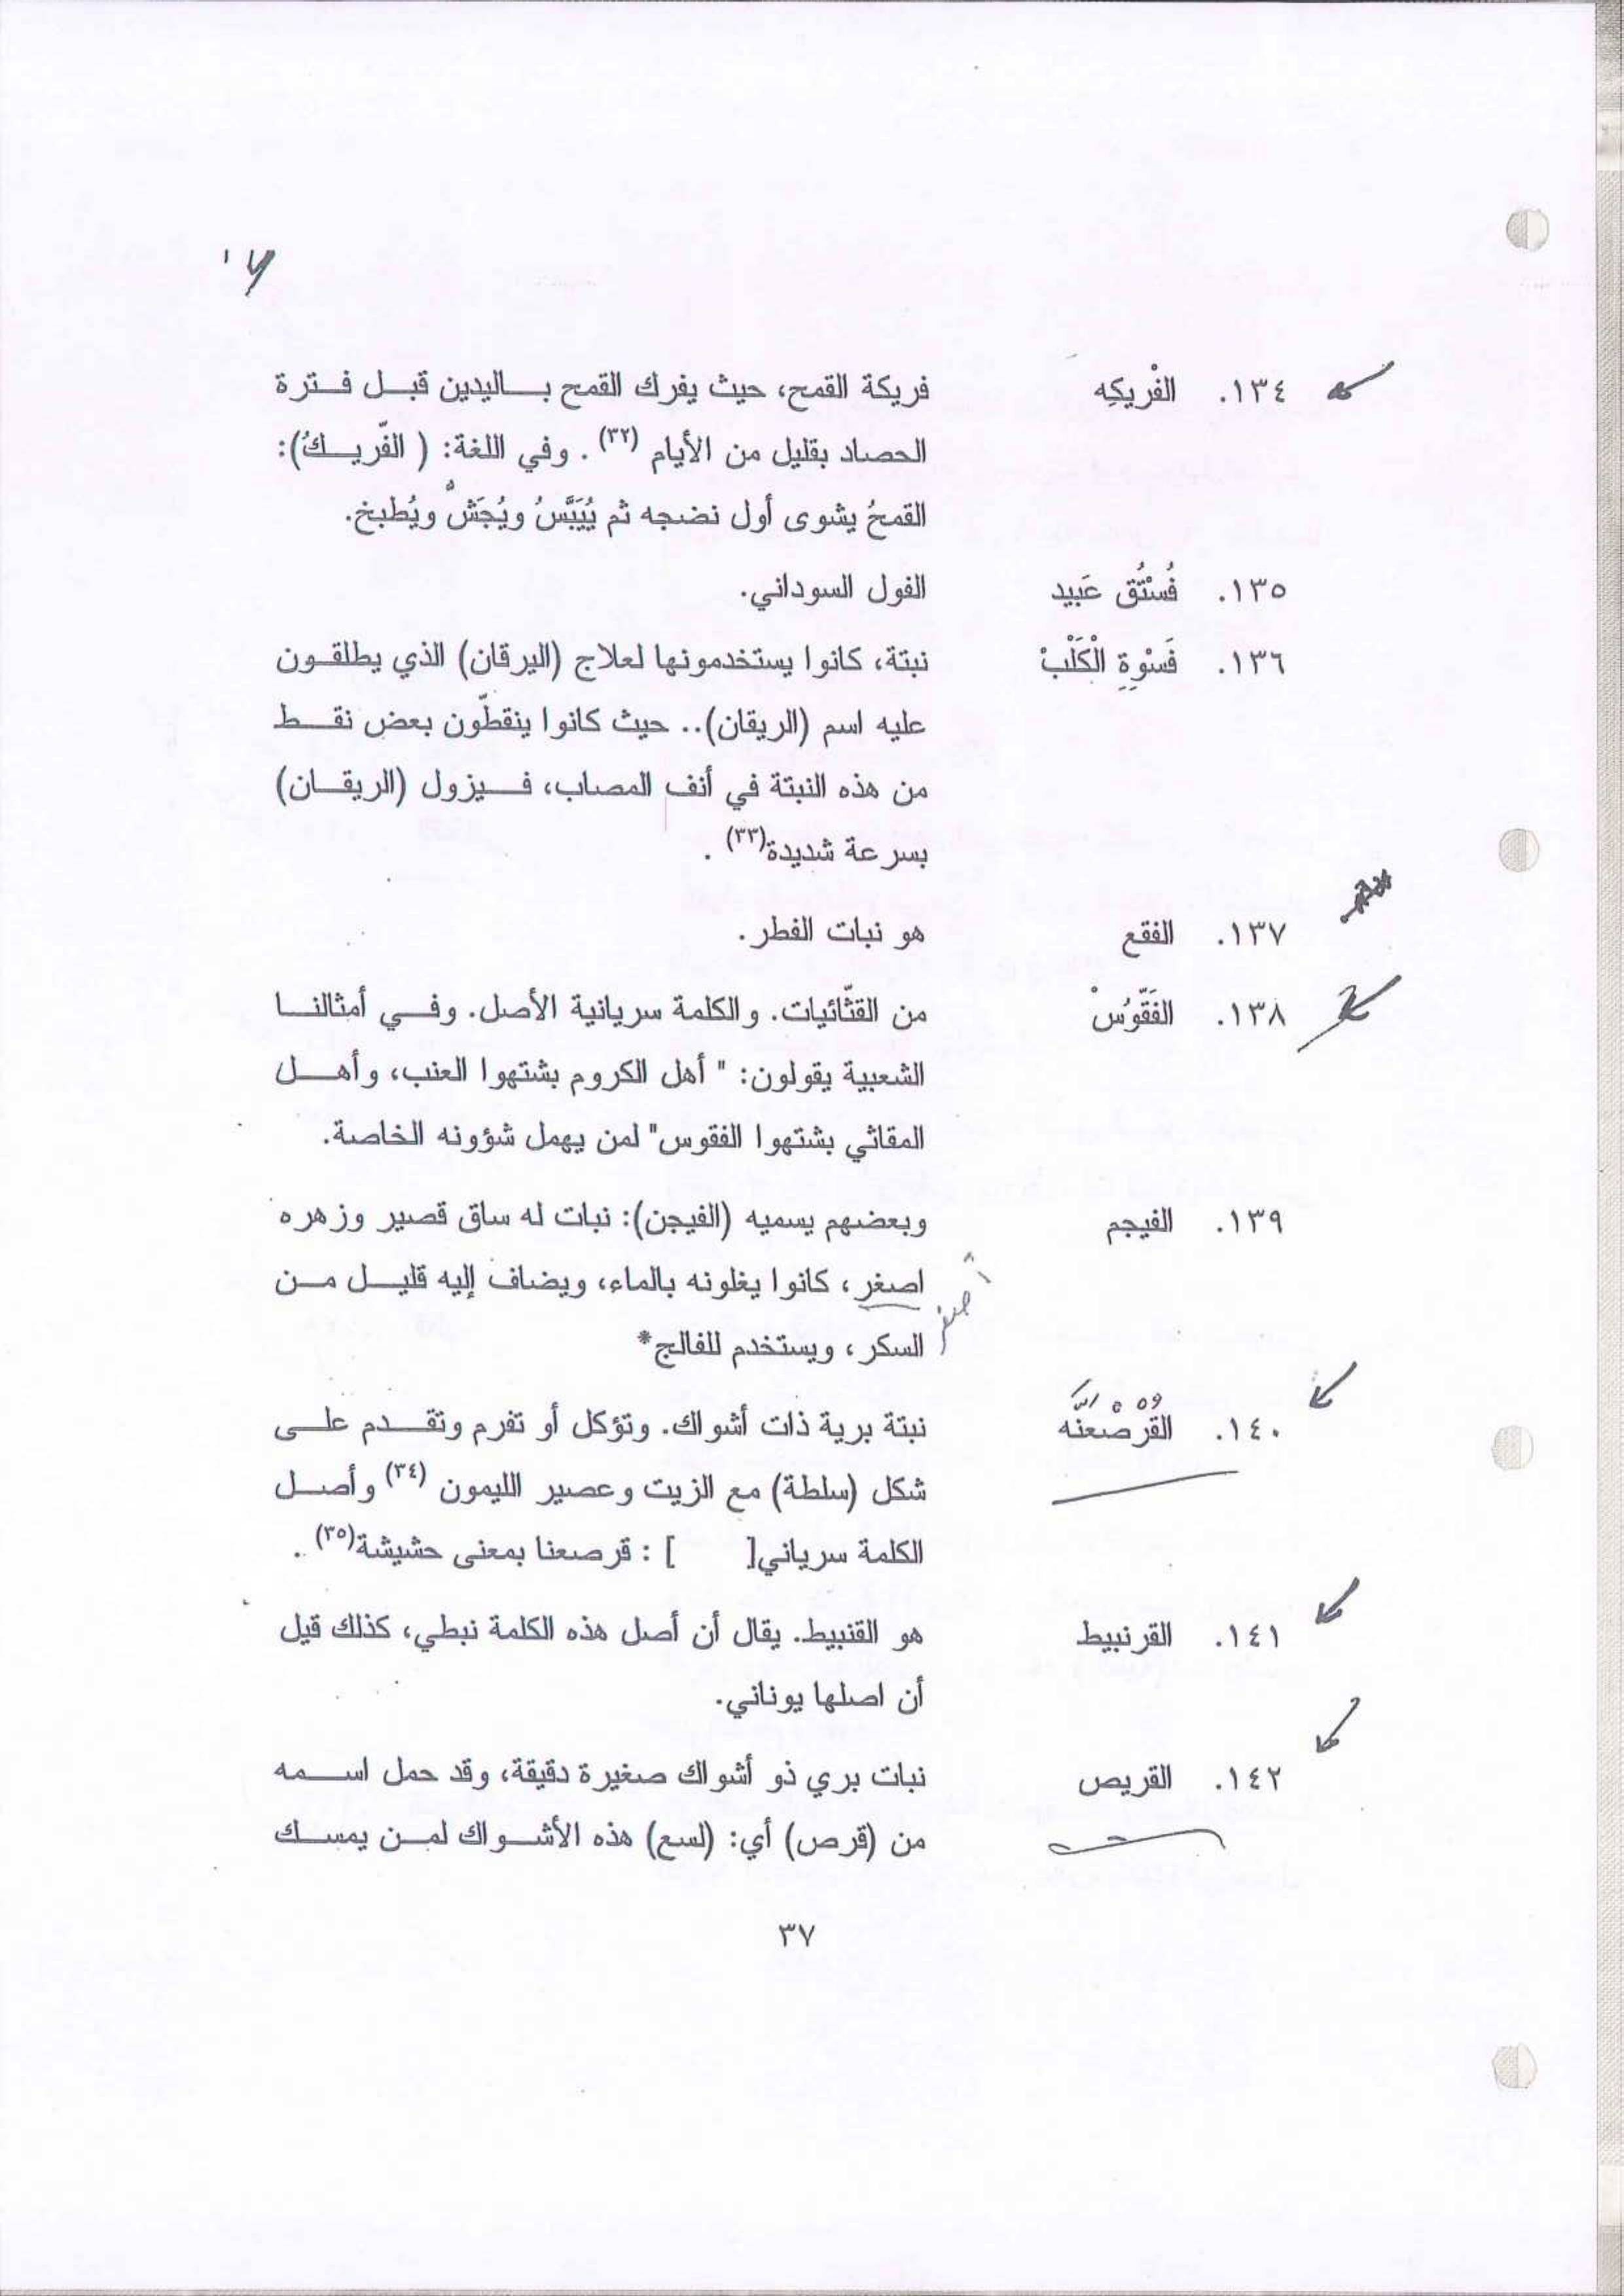 ١٣٤. الفْريكِه فريكة القمح، حيث يفرك القمح باليدين قبل فترة
الحصاد بقليل من الأيام (٣٢) . وفي اللغة: ( الفّريكُ):
القمحُ يشوى أول نضجه ثم يُيَبَّسُ ويُجَشُّ ويُطبخ.
١٣٥. فُسْتُق عَبيد الفول السوداني.
١٣٦. فَسْوِةِ الْكَلْبْ نبتة، كانوا يستخدمونها لعلاج (اليرقان) الذي يطلقون
عليه اسم (الريقان).. حيث كانوا ينقطّون بعض نقط
من هذه النبتة في أنف المصاب، فيزول (الريقان)
بسرعة شديدة(٣٣) .
١٣٧. الفقع هو نبات الفطر.
١٣٨. الفَقّوُسْ من القثّائيات. والكلمة سريانية الأصل. وفي أمثالنا
الشعبية يقولون: " أهل الكروم بشتهوا العنب، وأهل
المقاثي بشتهوا الفقوس" لمن يهمل شؤونه الخاصة.
١٣٩. الفيجم وبعضهم يسميه (الفيجن): نبات له ساق قصير وزهره
اصغر، كانوا يغلونه بالماء، ويضاف إليه قليل من
السكر، ويستخدم للفالج*
١٤٠. القرصعنه نبتة برية ذات أشواك. وتؤكل أو تفرم وتقدم على
شكل (سلطة) مع الزيت وعصير الليمون (٣٤) وأصل
الكلمة سرياني[ ] : قرصعنا بمعنى حشيشة(٣٥) .
١٤١. القرنبيط هو القنبيط. يقال أن أصل هذه الكلمة نبطي، كذلك قيل
أن اصلها يوناني.
١٤٢. القريص نبات بري ذو أشواك صغيرة دقيقة، وقد حمل اسمه
من (قرص) أي: (لسع) هذه الأشواك لمن يمسك
٣٧